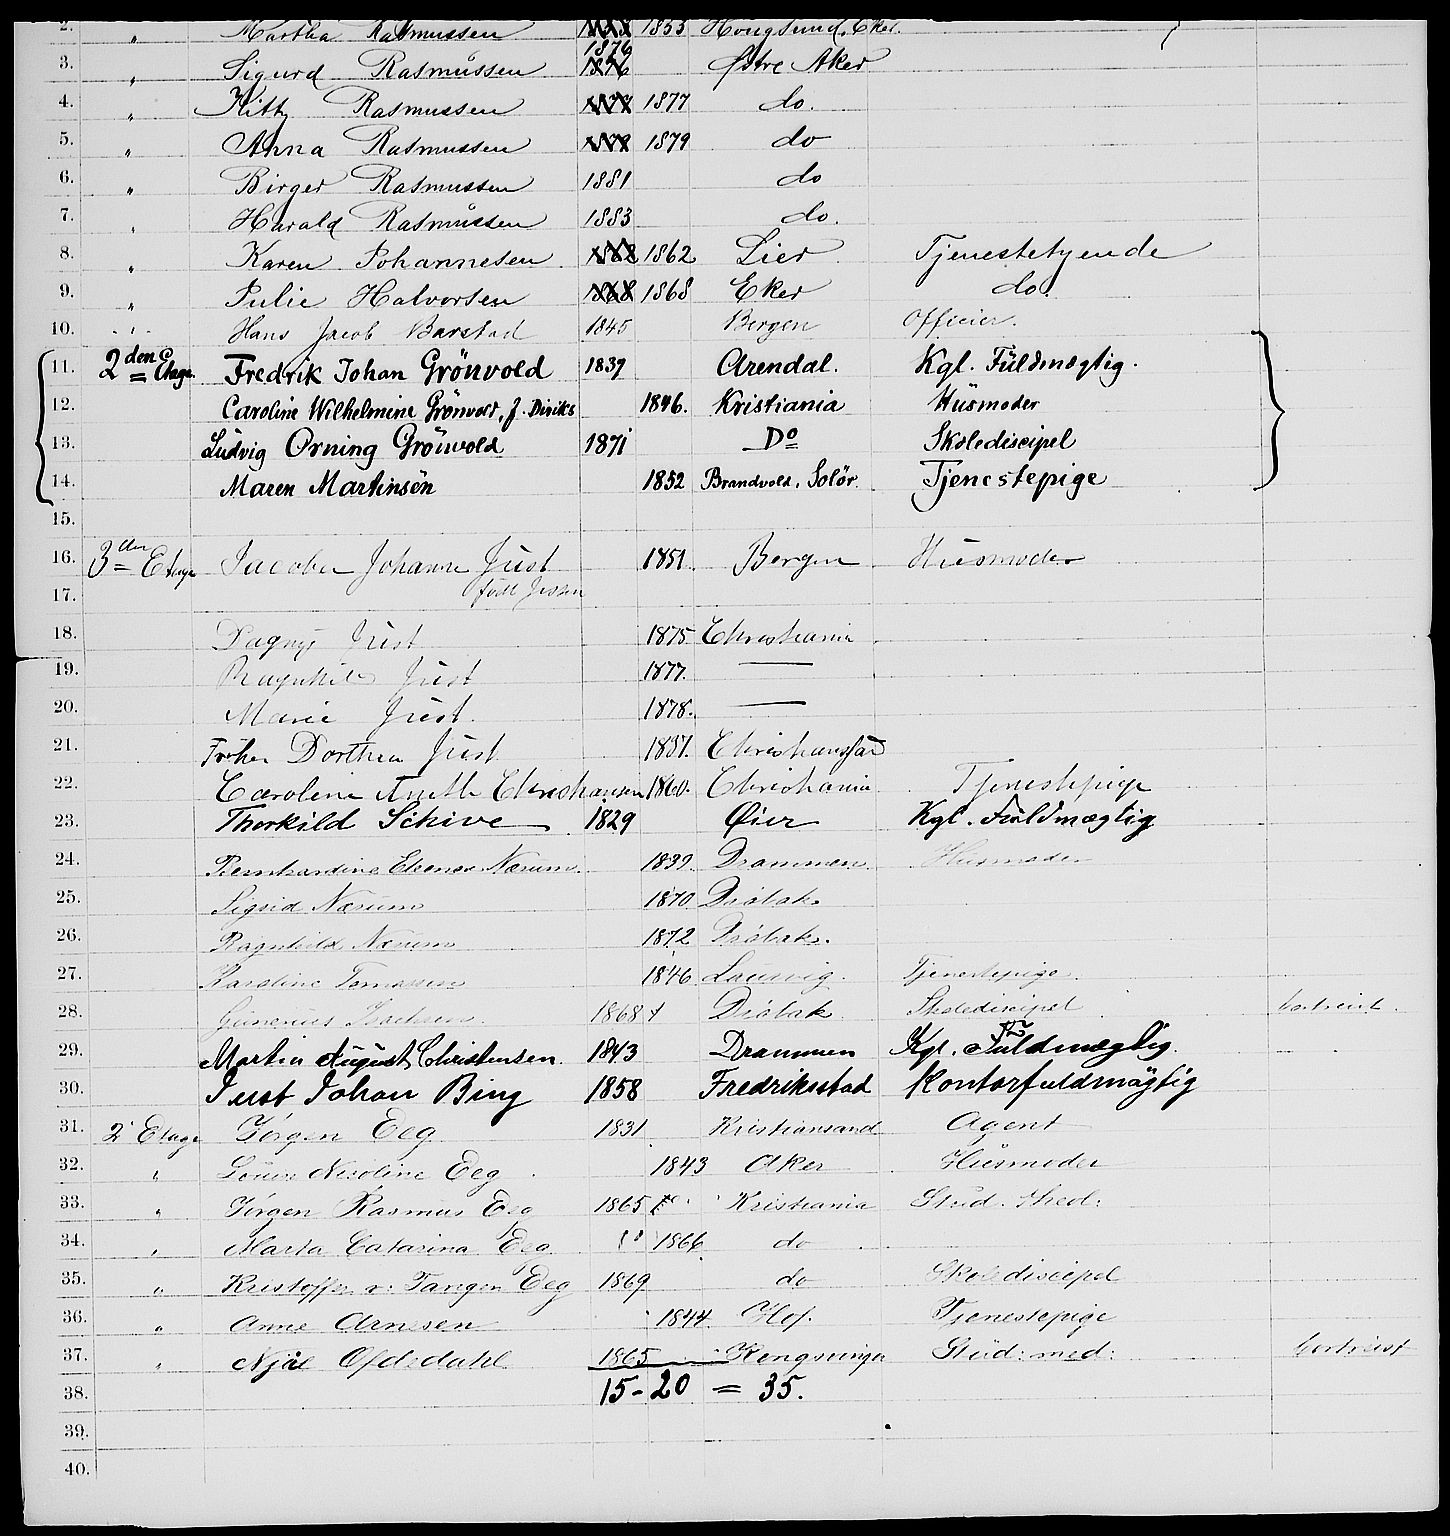 2. " Martha Rasmussen 1853 Hougsund, Eker.
1876
3. " Sigurd Rasmussen 1876 Østre Aker
4. " Kitty Rasmussen 1877 do.
5. " Anna Rasmussen 1879 do
6. " Birger Rasmussen 1881 do
7. " Harald Rasmussen 1883 do.
8. " Karen Johannesen 1862 Lier Tjenestetyende
9. " Julie Halvorsen 1868 1868 Eker do.
10. " Hans Jacob Barstad 1845 Bergen Officier.
11. 2den Etage Fredrik Johan Grönvold 1839 Arendal. Kgl. Füldmægtig.
12. Caroline Wilhelmine Grönvold, f. Diriks 1846. Kristiania Hüsmoder
13. Lüdvig Orning Grönvold 1871 Do Skolediscipel
14. Maren Martinsen 1852 Brandvold, Solör. Tjenestepige
15.
16. 3die Etage Jacoba Johanne Jüst 1851 Bergen Hüsmoder
17. født Jessen
18. Dagny Jüst 1875 Christiania
19. Ragnhild Jüst 1877. —
20. Marie Jüst. 1878. —
21. Frøken Dorthea Jüst 1837. Christianssand
22. Caroline Anette Christiansen 1860. Christiania Tjenestepige
23. Thorkild Schive 1829 Øier Kgl. Füldmægtig
24. Bernhardine Elenea Nærum. 1839 Drammen Hüsmoder
25. Sigrid Nærum 1870 Drøbak
26. Ragnhild Nærum 1872 Drøbak.
27. Karoline Tomassen 1846 Laurvig. Tjenestepige
28. Günerius Isachsen 1868 Drøbak Skolediscipel bortreist.
29. Martin August Christensen 1843 Drammen Kgl. Füldmægtig.
30. Just Johan Bing 1858 Fredriksstad Kontorfuldmægtig
31. 2 Etage Jørgen Eeg 1831 Kristiansand Agent
32. " Nicoline Eeg 1843 Aker Hüsmoder
33. " Jørgen Rasmus Eeg 1865 Kristiania Stüd. theol:
34. " Marta Catarina Eeg 1866 do
35. " Kristoffer v: Tangen Eeg 1869 do Skolediscipel
36. " Anne Arnesen 1844 Hof. Tjenestepige
37. " Njål Ofdedahl 1865 Kongsvinger Stüd: med: bortreist
38. 15-20 = 35.
39.
40.